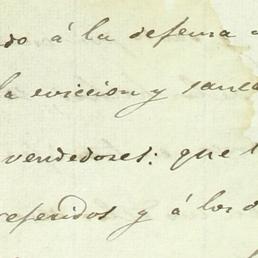 do á la defensa
la eviccion y sane
vendedores: que
referidos y á los